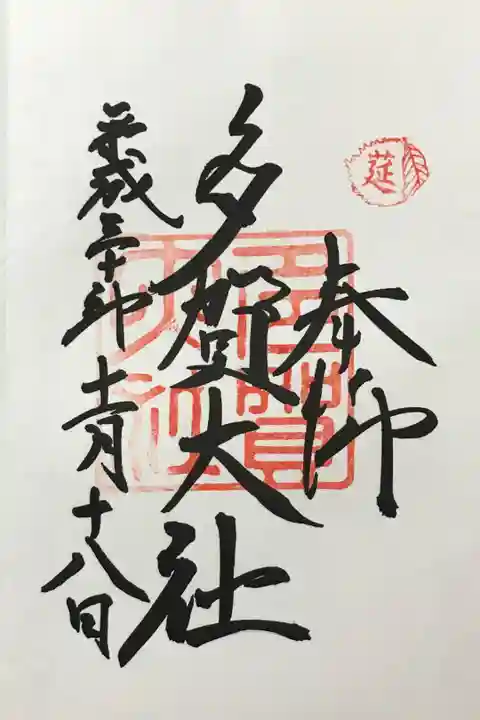 莚
奉拝
多賀大社
平成三十年十一月十八日
多賀
大社